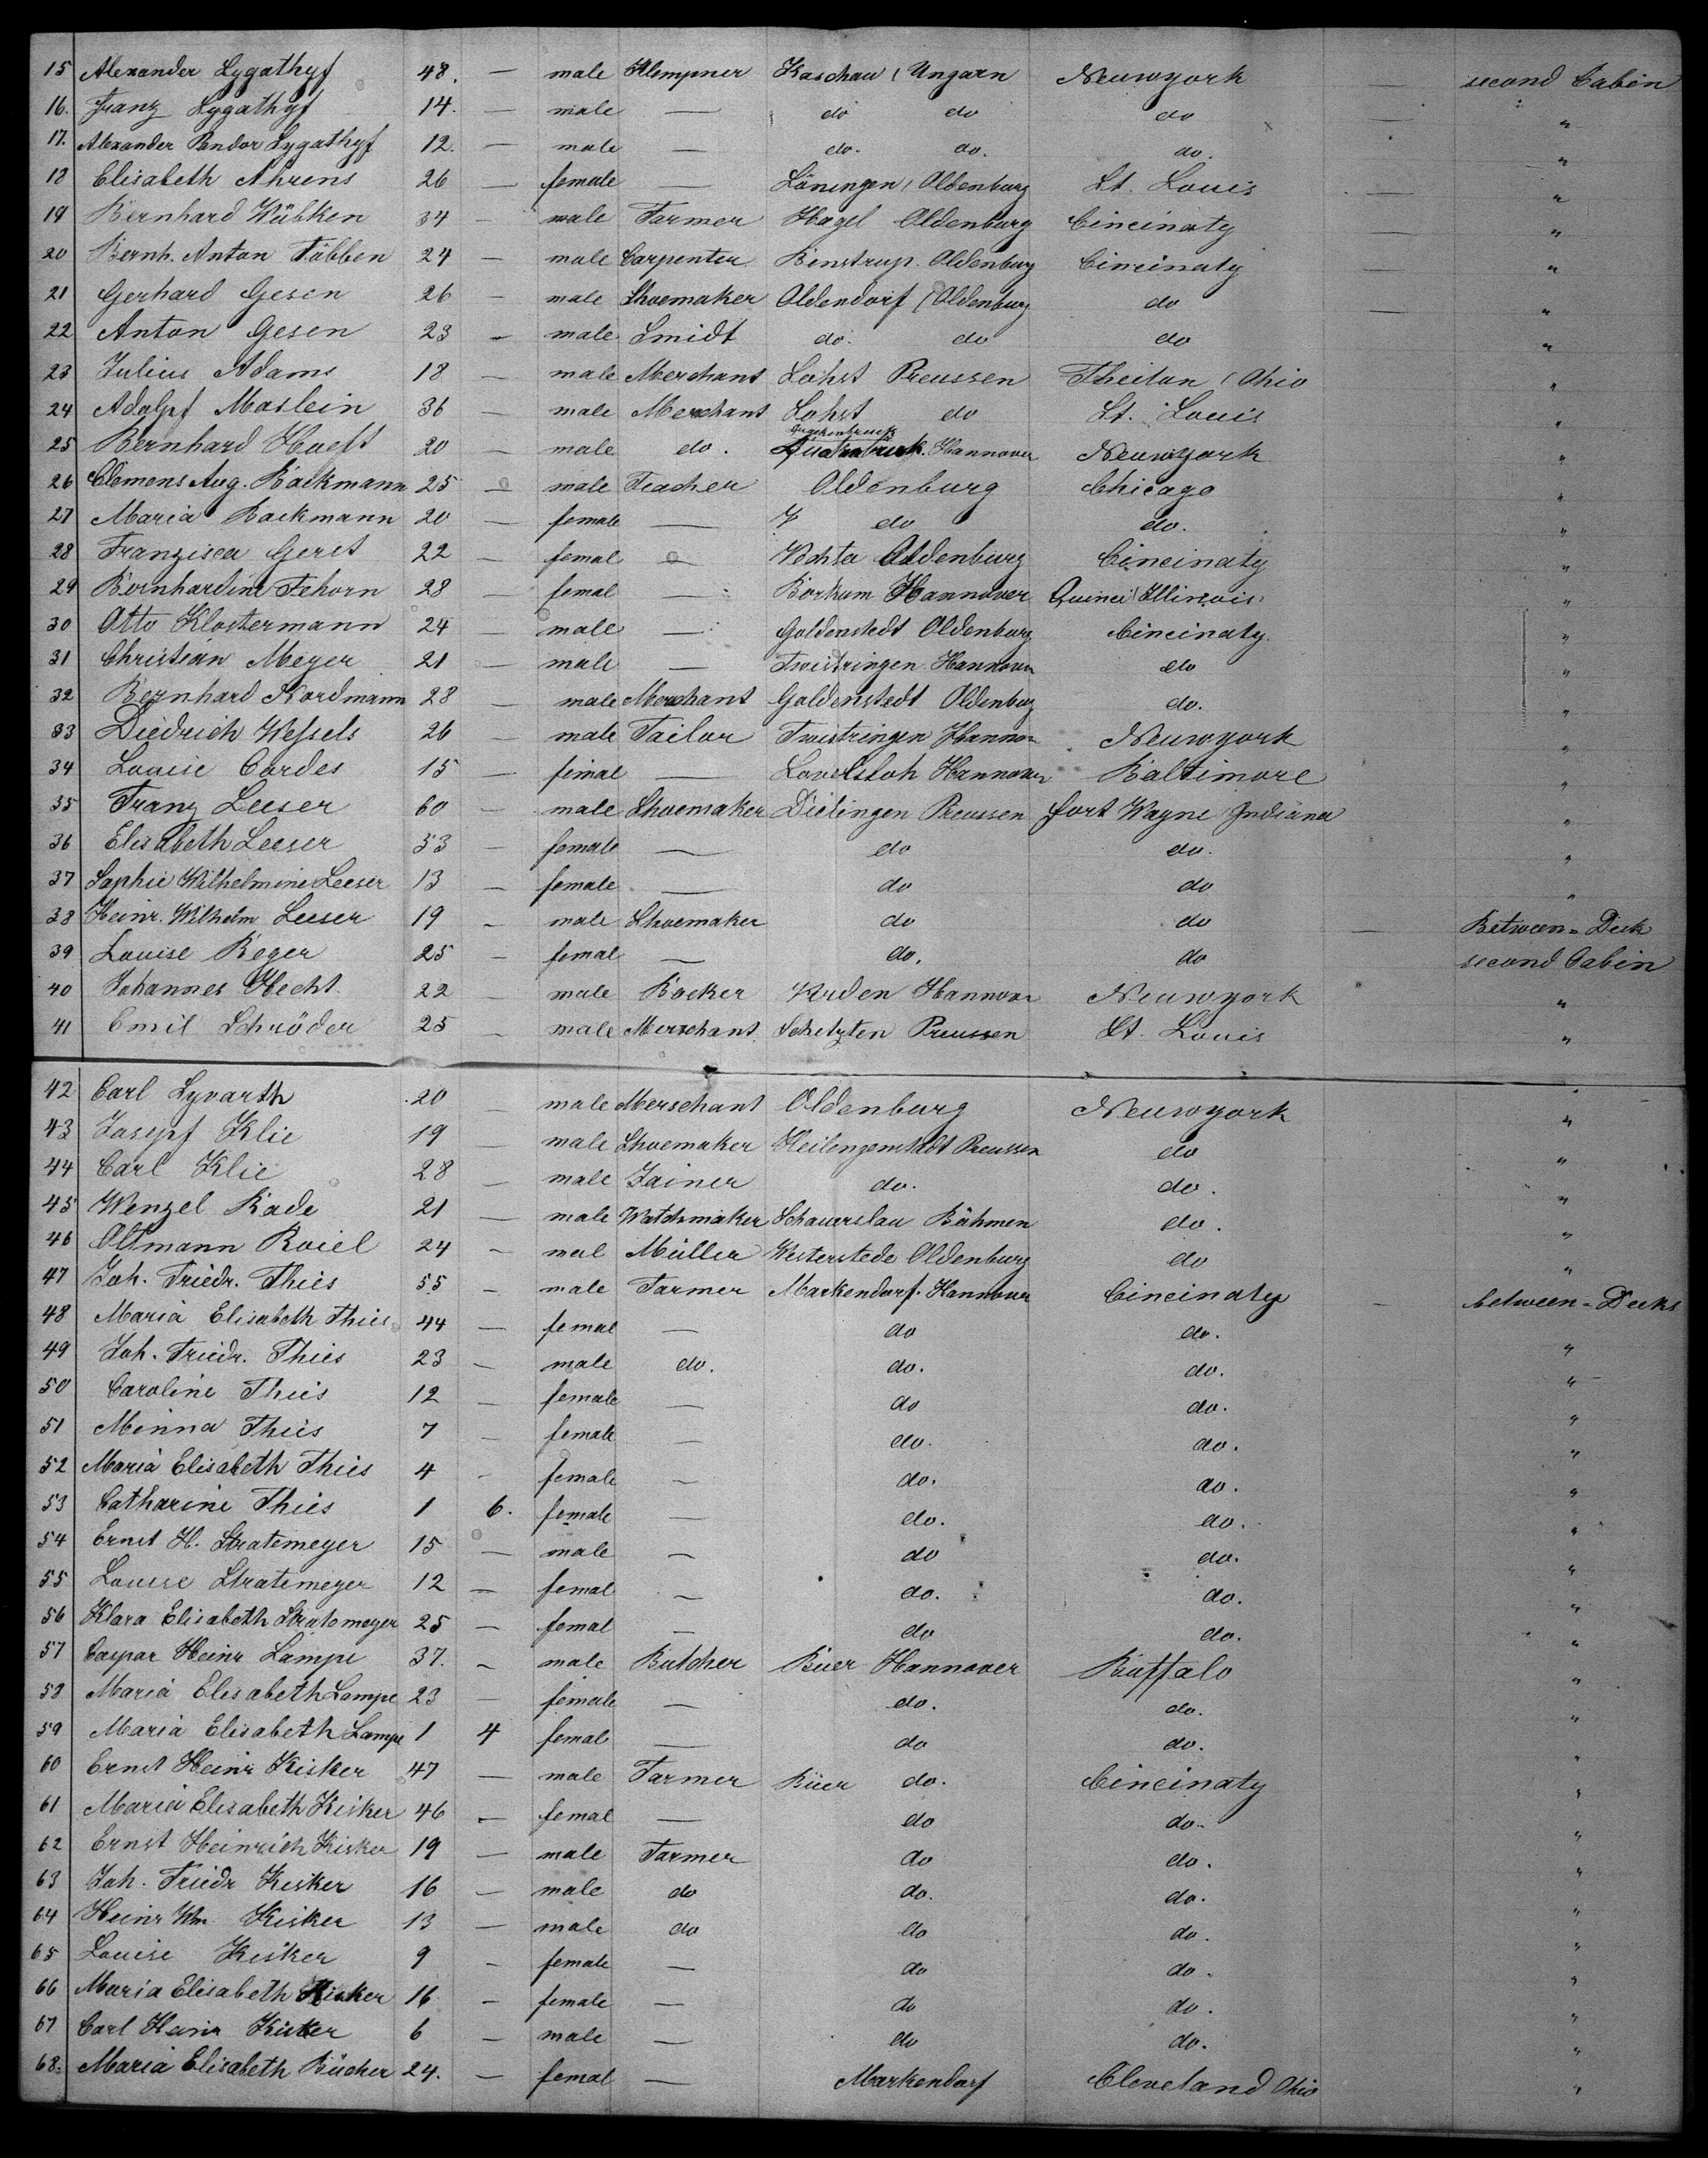 15 Alexander Lygathyf 48. — male Klempner Kaschau / Ungarn Neuwyork — second Cabin
16. Franz Lygathyf 14. — male — do do do — "
17. Alexander Pandor Lygathyf 12. — male — do. do. do. — "
18 Elisabeth Ahrens 26 — female — Löningen / Oldenburg St. Louis — "
19 Bernhard Wübken 34 — male Farmer Hagel Oldenburg Cincinaty — "
20 Bernh. Anton Többen 24 — male Carpenter Benstrup. Oldenburg Cincinaty — "
21 Gerhard Gesen 26 — male Shoemaker Oldendorf / Oldenburg do — "
22 Anton Gesen 23 — male Smidt do. do do "
23 Julius Adams 18 — male Merchant Lohst Preussen Theilan / Ohio "
24 Adolpf Maslein 36 — male Merchant Lohst do St. Louis "
25 Bernhard Hoeft 20 — male do. Hannover Neuwyork "
26 Clemens Aug. Backmann 25 — male Teacher Oldenburg Chicago "
27 Maria Backmann 20 — female — do do. "
28 Franzisca Gerst 22 — femal — Vechta Oldenburg Cincinaty "
29 Bernhardine Fehorn 28 — femal — Borkum Hannover Quinci / Illinois "
30 Otto Klostermann 24 — male — Goldenstedt Oldenburg Cincinaty. "
31 Christian Meyer 21 — male — Twistringen Hannover do "
32 Bernhard Nordmann 28 — male Merchant Goldenstedt Oldenburg do. "
33 Diedrich Wessels 26 — male Tailor Twistringen Hannov Neuwyork "
34 Louise Cordes 15 — femal — Lovelsloh Hannover Baltimore "
35 Franz Leeser 60 — male Shoemaker Dielingen Preussen Fort Wayne / Indiana "
36 Elisabeth Leeser 53 — female — do do. "
37 Sophie Wilhelmine Leeser 13 — female — do do "
38 Heinr. Wilhelm Leeser 19 — male Shoemaker do do — Between-Deck
39 Louise Reger 25 — femal — do. do second Cabin
40 Johannes Hecht 22 — male Backer Verden Hannover Neuwyork "
41 Emil Schröder 25 — male Merschant Schetzten Preussen St. Louis "
42 Carl Lyvarth 20 — male Merschant Oldenburg Neuwyork "
43 Josepf Klie 19 — male Shoemaker Heilengenstadt Preussen do "
44 Carl Klie 28 — male Jainer do. do. "
45 Wenzel Rade 21 — male Watchmaker Schauerslau Böhmen do. "
46 Oltmann Roiel 24 — mal Müller Westerstede Oldenburg do "
47 Joh. Friedr. Thies 55 — male Farmer Markendorf. Hannover Cincinaty — between-Decks
48 Maria Elisabeth Thies 44 — femal — do do. "
49 Joh. Friedr. Thies 23 — male do. do. do. "
50 Caroline Thies 12 — female — do do. "
51 Minna Thies 7 — female — do. do. "
52 Maria Elisabeth Thies 4 - female — do. do. "
53 Catharine Thies 1 6. female — do. do. "
54 Ernst H. Stratemeyer 15 — male — do do. "
55 Louise Stratemeyer 12 — femal — do. do. "
56 Klara Elisabeth Stratemeyer 25 — femal — do do. "
57 Caspar Heinr Lampe 37. — male Butcher Büer Hannover Buffalo "
58 Maria Elisabeth Lampe 23 — female — do. do. "
59 Maria Elisabeth Lampe 1 4 femal — do do. "
60 Ernst Heinr Kisker 47 — male Farmer Büer do. Cincinaty "
61 Maria Elisabeth Kisker 46 — femal — do do. "
62 Ernst Heinrich Kisker 19 — male Farmer do do. "
63 Joh. Friedr Kisker 16 — male do do. do. "
64 Heinr Wm Kisker 13 — male do do do. "
65 Louise Kisker 9 — female — do do. "
66 Maria Elisabeth Kisker 16 — female — do do. "
67 Carl Heinr Kisker 6 — male — do do. "
68. Maria Elisabeth Bücher 24. — femal — Markendorf Cleveland Ohio "